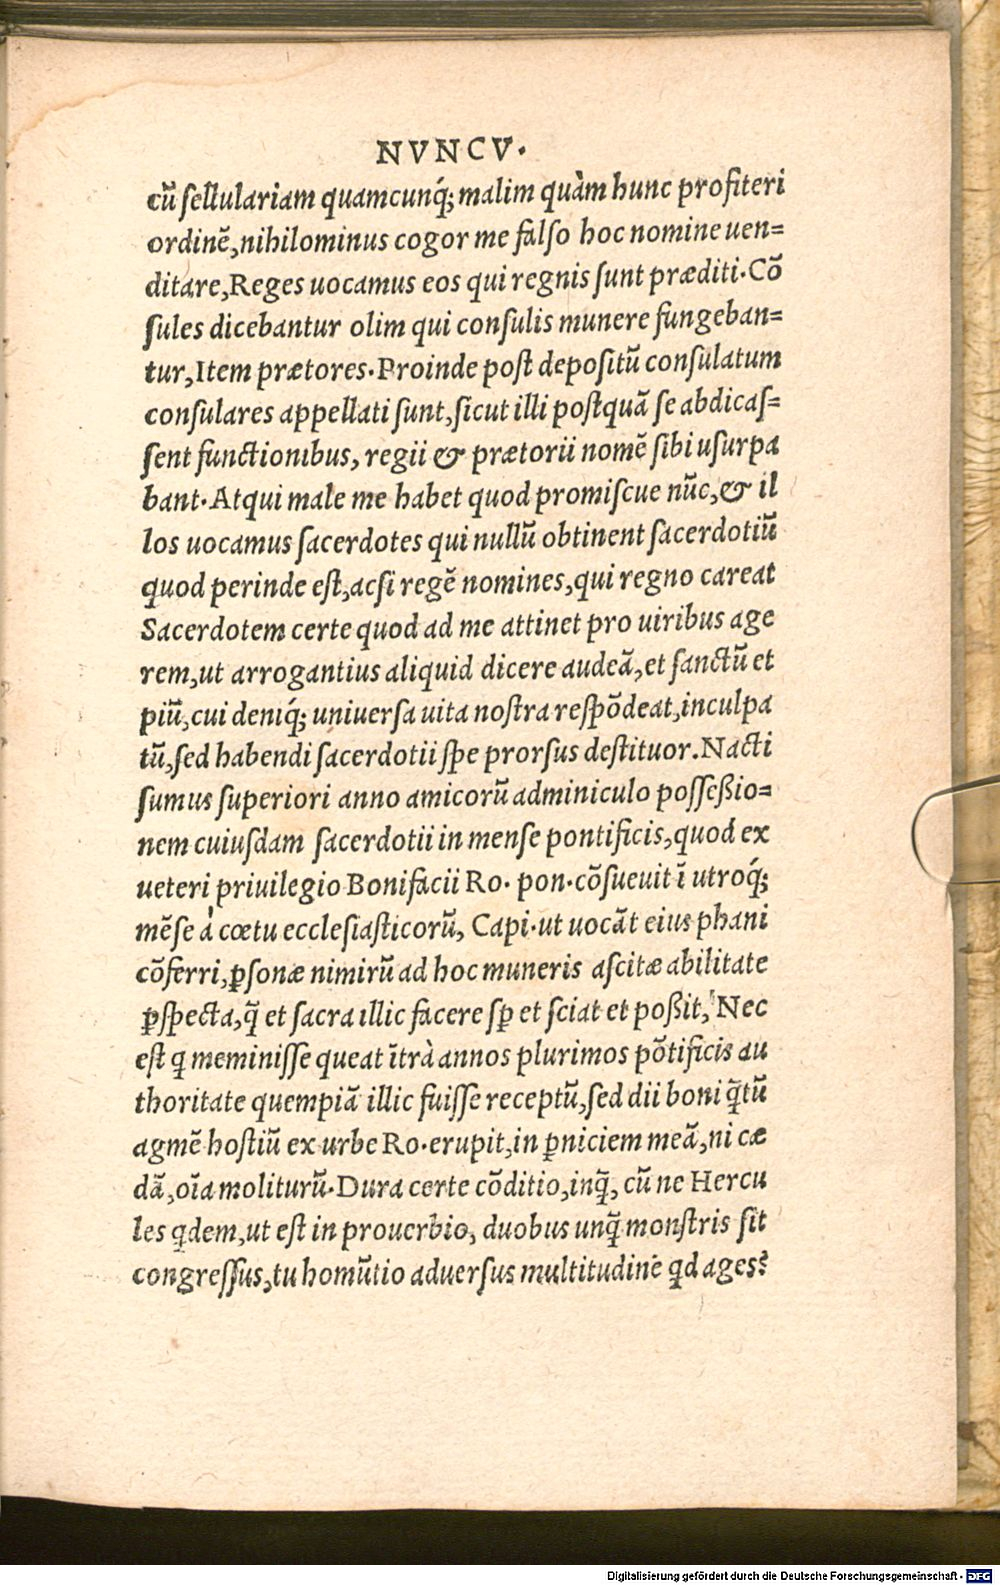 NVNCV.
cũ ſellulariam quamcunq́; malim quàm hunc profiteri
ordinẽ, nihilominus cogor me falſo hoc nomine uen=
ditare, Reges uocamus eos qui regnis ſunt præditi. Cõ
ſules dicebantur olim qui conſulis munere fungeban=
tur, Item prætores. Proinde poſt depoſitũ conſulatum
conſulares appellati ſunt, ſicut illi poſtquã ſe abdicaſ=
ſent functionibus, regii & prætorii nomẽ ſibi uſurpa
bant. Atqui male me habet quod promiſcue nũc, & il
los uocamus ſacerdotes qui nullũ obtinent ſacerdotiũ
quod perinde eſt, acſi regẽ nomines, qui regno careat
Sacerdotem certe quod ad me attinet pro uiribus age
rem, ut arrogantius aliquid dicere audeã, et ſanctũ et
piũ, cui deniq́; uniuerſa uita noſtra reſpõdeat, inculpa
tũ, ſed habendi ſacerdotii ſpe prorſus deſtituor. Nacti
ſumus ſuperiori anno amicorũ adminiculo poſſeßio=
nem cuiuſdam ſacerdotii in menſe pontificis, quod ex
ueteri priuilegio Bonifacii Ro. pon. cõſueuit ĩ utroq́;
mẽſe à cœtu eccleſiaſticorũ, Capi. ut uocãt eius phani
cõferri, p̱ſonæ nimirũ ad hoc muneris aſcitæ abilitate
p̱ſpecta, q̃ et ſacra illic facere ſp̱ et ſciat et poßit, Nec
eſt q̱ meminiſſe queat ĩtrà annos plurimos põtificis au
thoritate quempiã illic fuiſſe receptũ, ſed dii boni q̃tũ
agmẽ hoſtiũ ex urbe Ro. erupit, in p̱niciem meã, ni cæ
dã, oĩa moliturũ. Dura certe cõditio, inq̃, cũ ne Hercu
les q̱dem, ut eſt in prouerbio, duobus unq̃ monſtris ſit
congreſſus, tu homũtio aduerſus multitudinẽ q̱d ages?
Digitalisierung gefördert durch die Deutsche Forschungsgemeinschaft - DFG